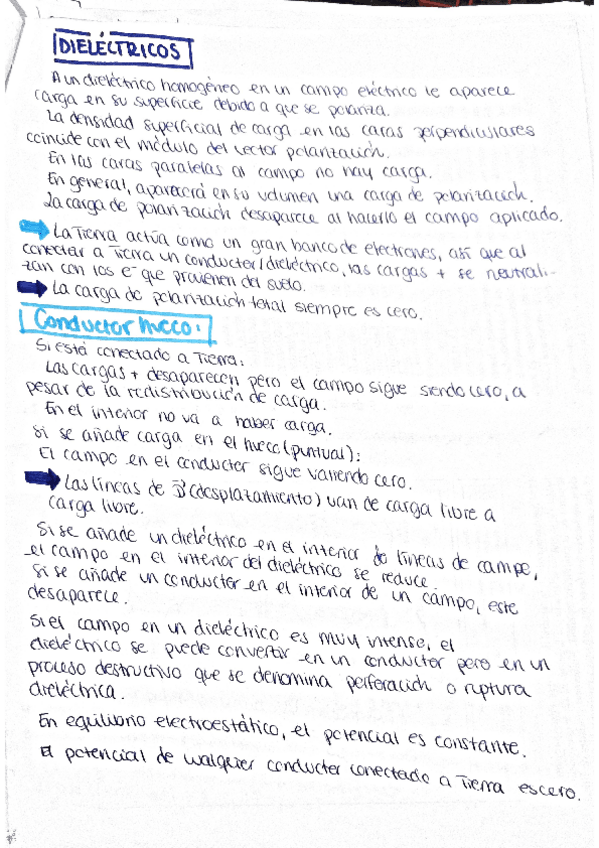 DIELÉCTRICOS
A un dieléctrico homogéneo en un campo eléctrico le aparece
carga en su superficie debido a que se polariza.
La densidad superficial de carga en las caras perpendiculares
coincide con el módulo del vector polarización.
En las caras paralelas al campo no hay carga.
En general, aparecerá en su volumen una carga de polarización.
La carga de polarización desaparece al hacerlo el campo aplicado.
La Tierra actúa como un gran banco de electrones, así que al
conectar a Tierra un conductor/dieléctrico, las cargas + se neutrali-
zan con los e⁻ que provienen del suelo.
La carga de polarización total siempre es cero.
Conductor hueco:
Si está conectado a Tierra:
Las cargas + desaparecen pero el campo sigue siendo cero, a
pesar de la redistribución de carga.
En el interior no va a haber carga.
Si se añade carga en el hueco (puntual):
El campo en el conductor sigue valiendo cero.
Las líneas de D⃗ (desplazamiento) van de carga libre a
carga libre.
Si se añade un dieléctrico en el interior de líneas de campo,
el campo en el interior del dieléctrico se reduce.
Si se añade un conductor en el interior de un campo, este
desaparece.
Si el campo en un dieléctrico es muy intenso, el
dieléctrico se puede convertir en un conductor pero en un
proceso destructivo que se denomina perforación o ruptura
dieléctrica.
En equilibrio electroestático, el potencial es constante.
El potencial de cualquier conductor conectado a Tierra es cero.